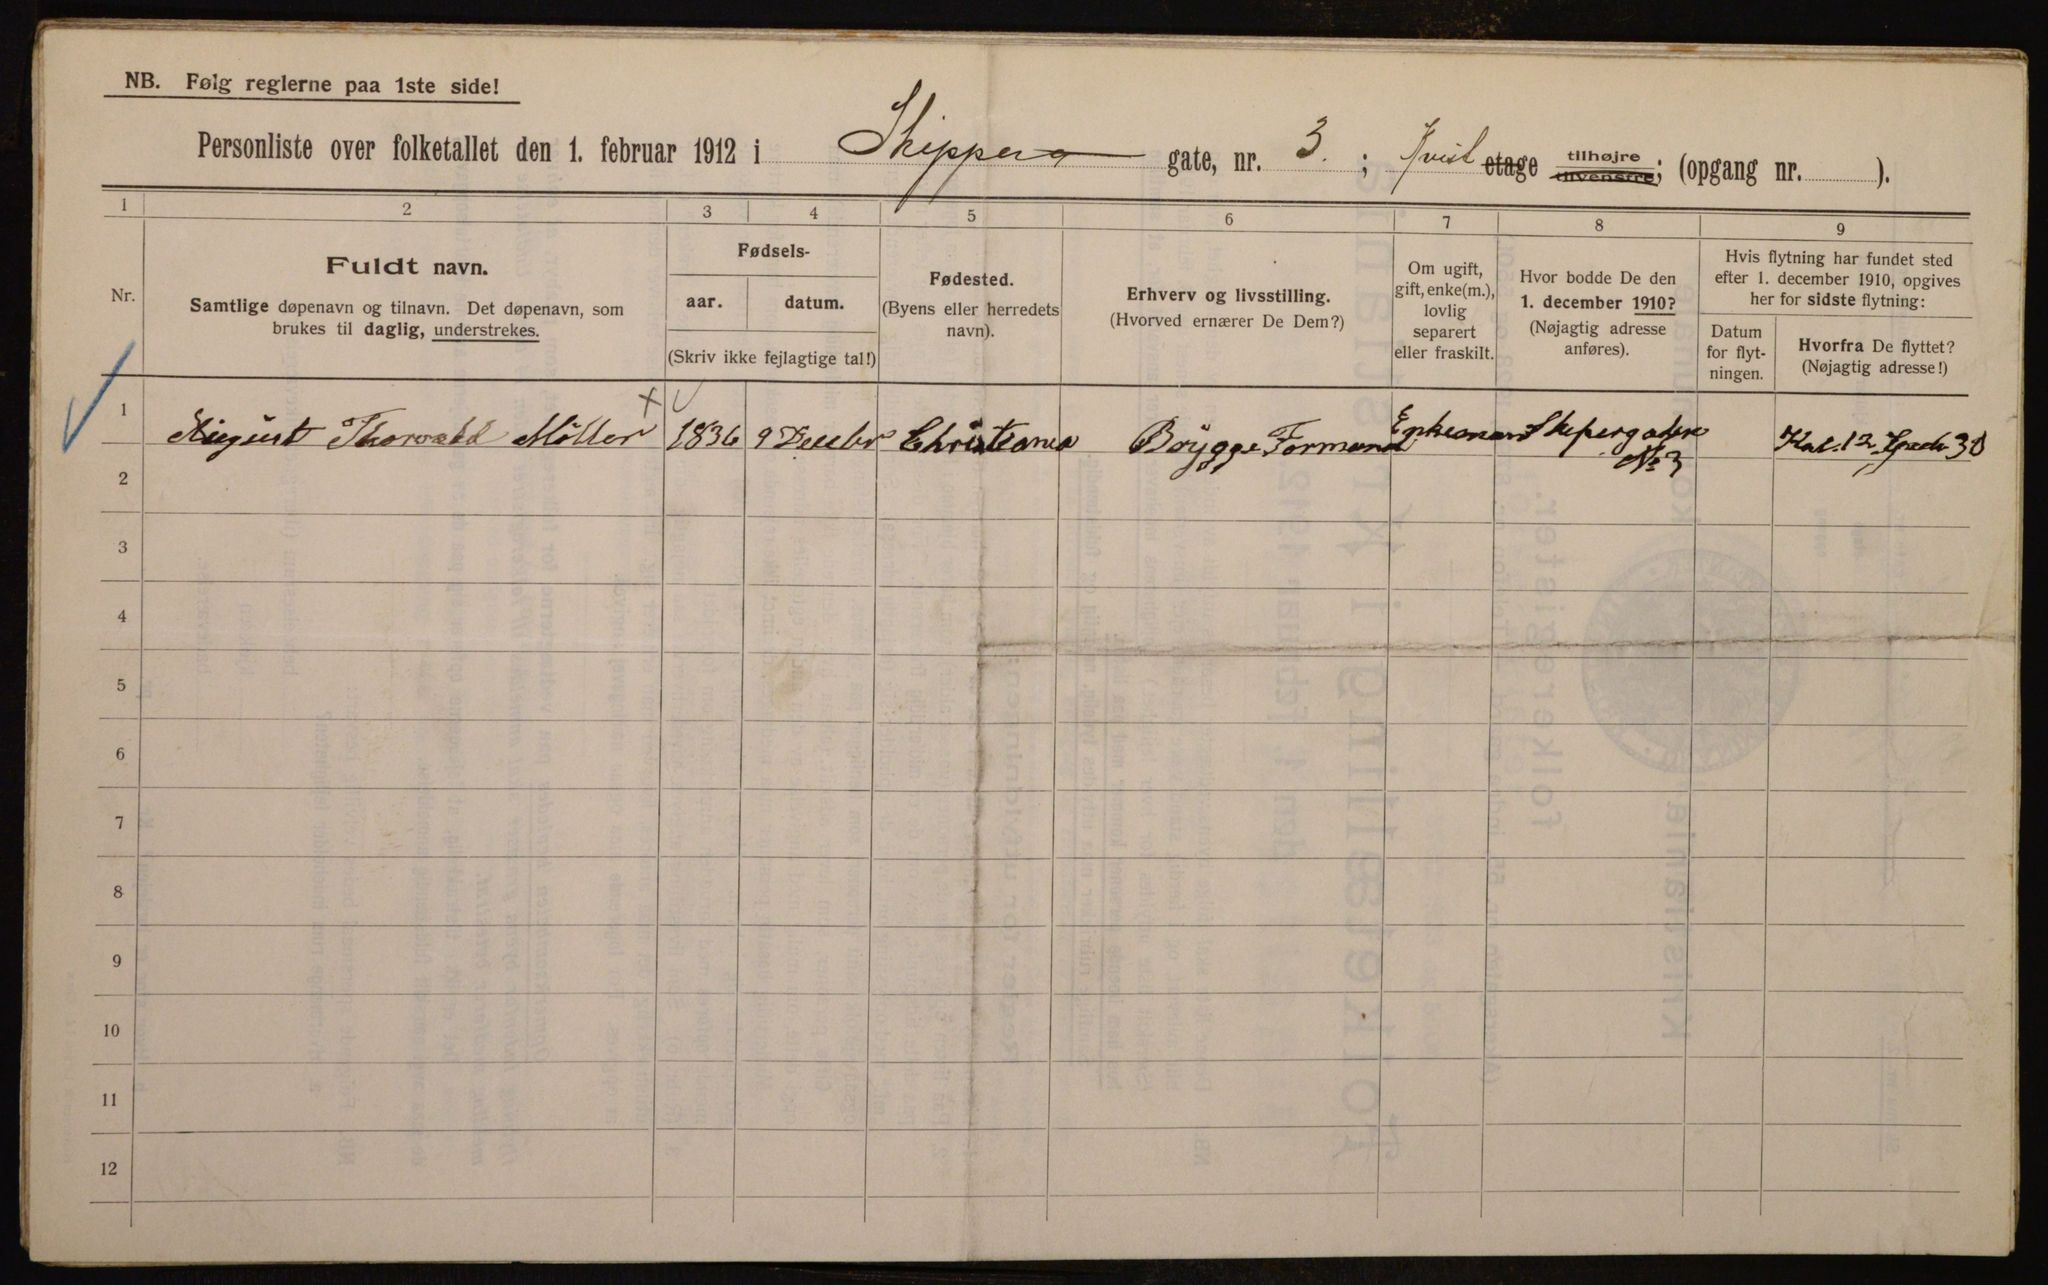 NB. Følg reglerne paa 1ste side!
Personliste over folketallet den 1. februar 1912 i Skippera gate, nr. 3. ; Kvist etage tilhøjre tilvenstre; (opgang nr. ).
1 2 3 4 5 6 7 8 9
Nr.
Fuldt navn.
Samtlige døpenavn og tilnavn. Det døpenavn, som
brukes til daglig, understrekes.
Fødsels-
aar. datum.
(Skriv ikke fejlagtige tal!)
Fødested.
(Byens eller herredets
navn).
Erhverv og livsstilling.
(Hvorved ernærer De Dem?)
Om ugift,
gift, enke(m.),
lovlig
separert
eller fraskilt.
Hvor bodde De den
1. december 1910?
(Nøjagtig adresse
anføres).
Hvis flytning har fundet sted
efter 1. december 1910, opgives
her for sidste flytning:
Datum
for flyt-
ningen.
Hvorfra De flyttet?
(Nøjagtig adresse!)
1 August Thorvald Möller 1836 9 Decebr Christiania Brygge Formand Enkemand Skipergaden
No 3
2
3
4
5
6
7
8
9
10
11
12